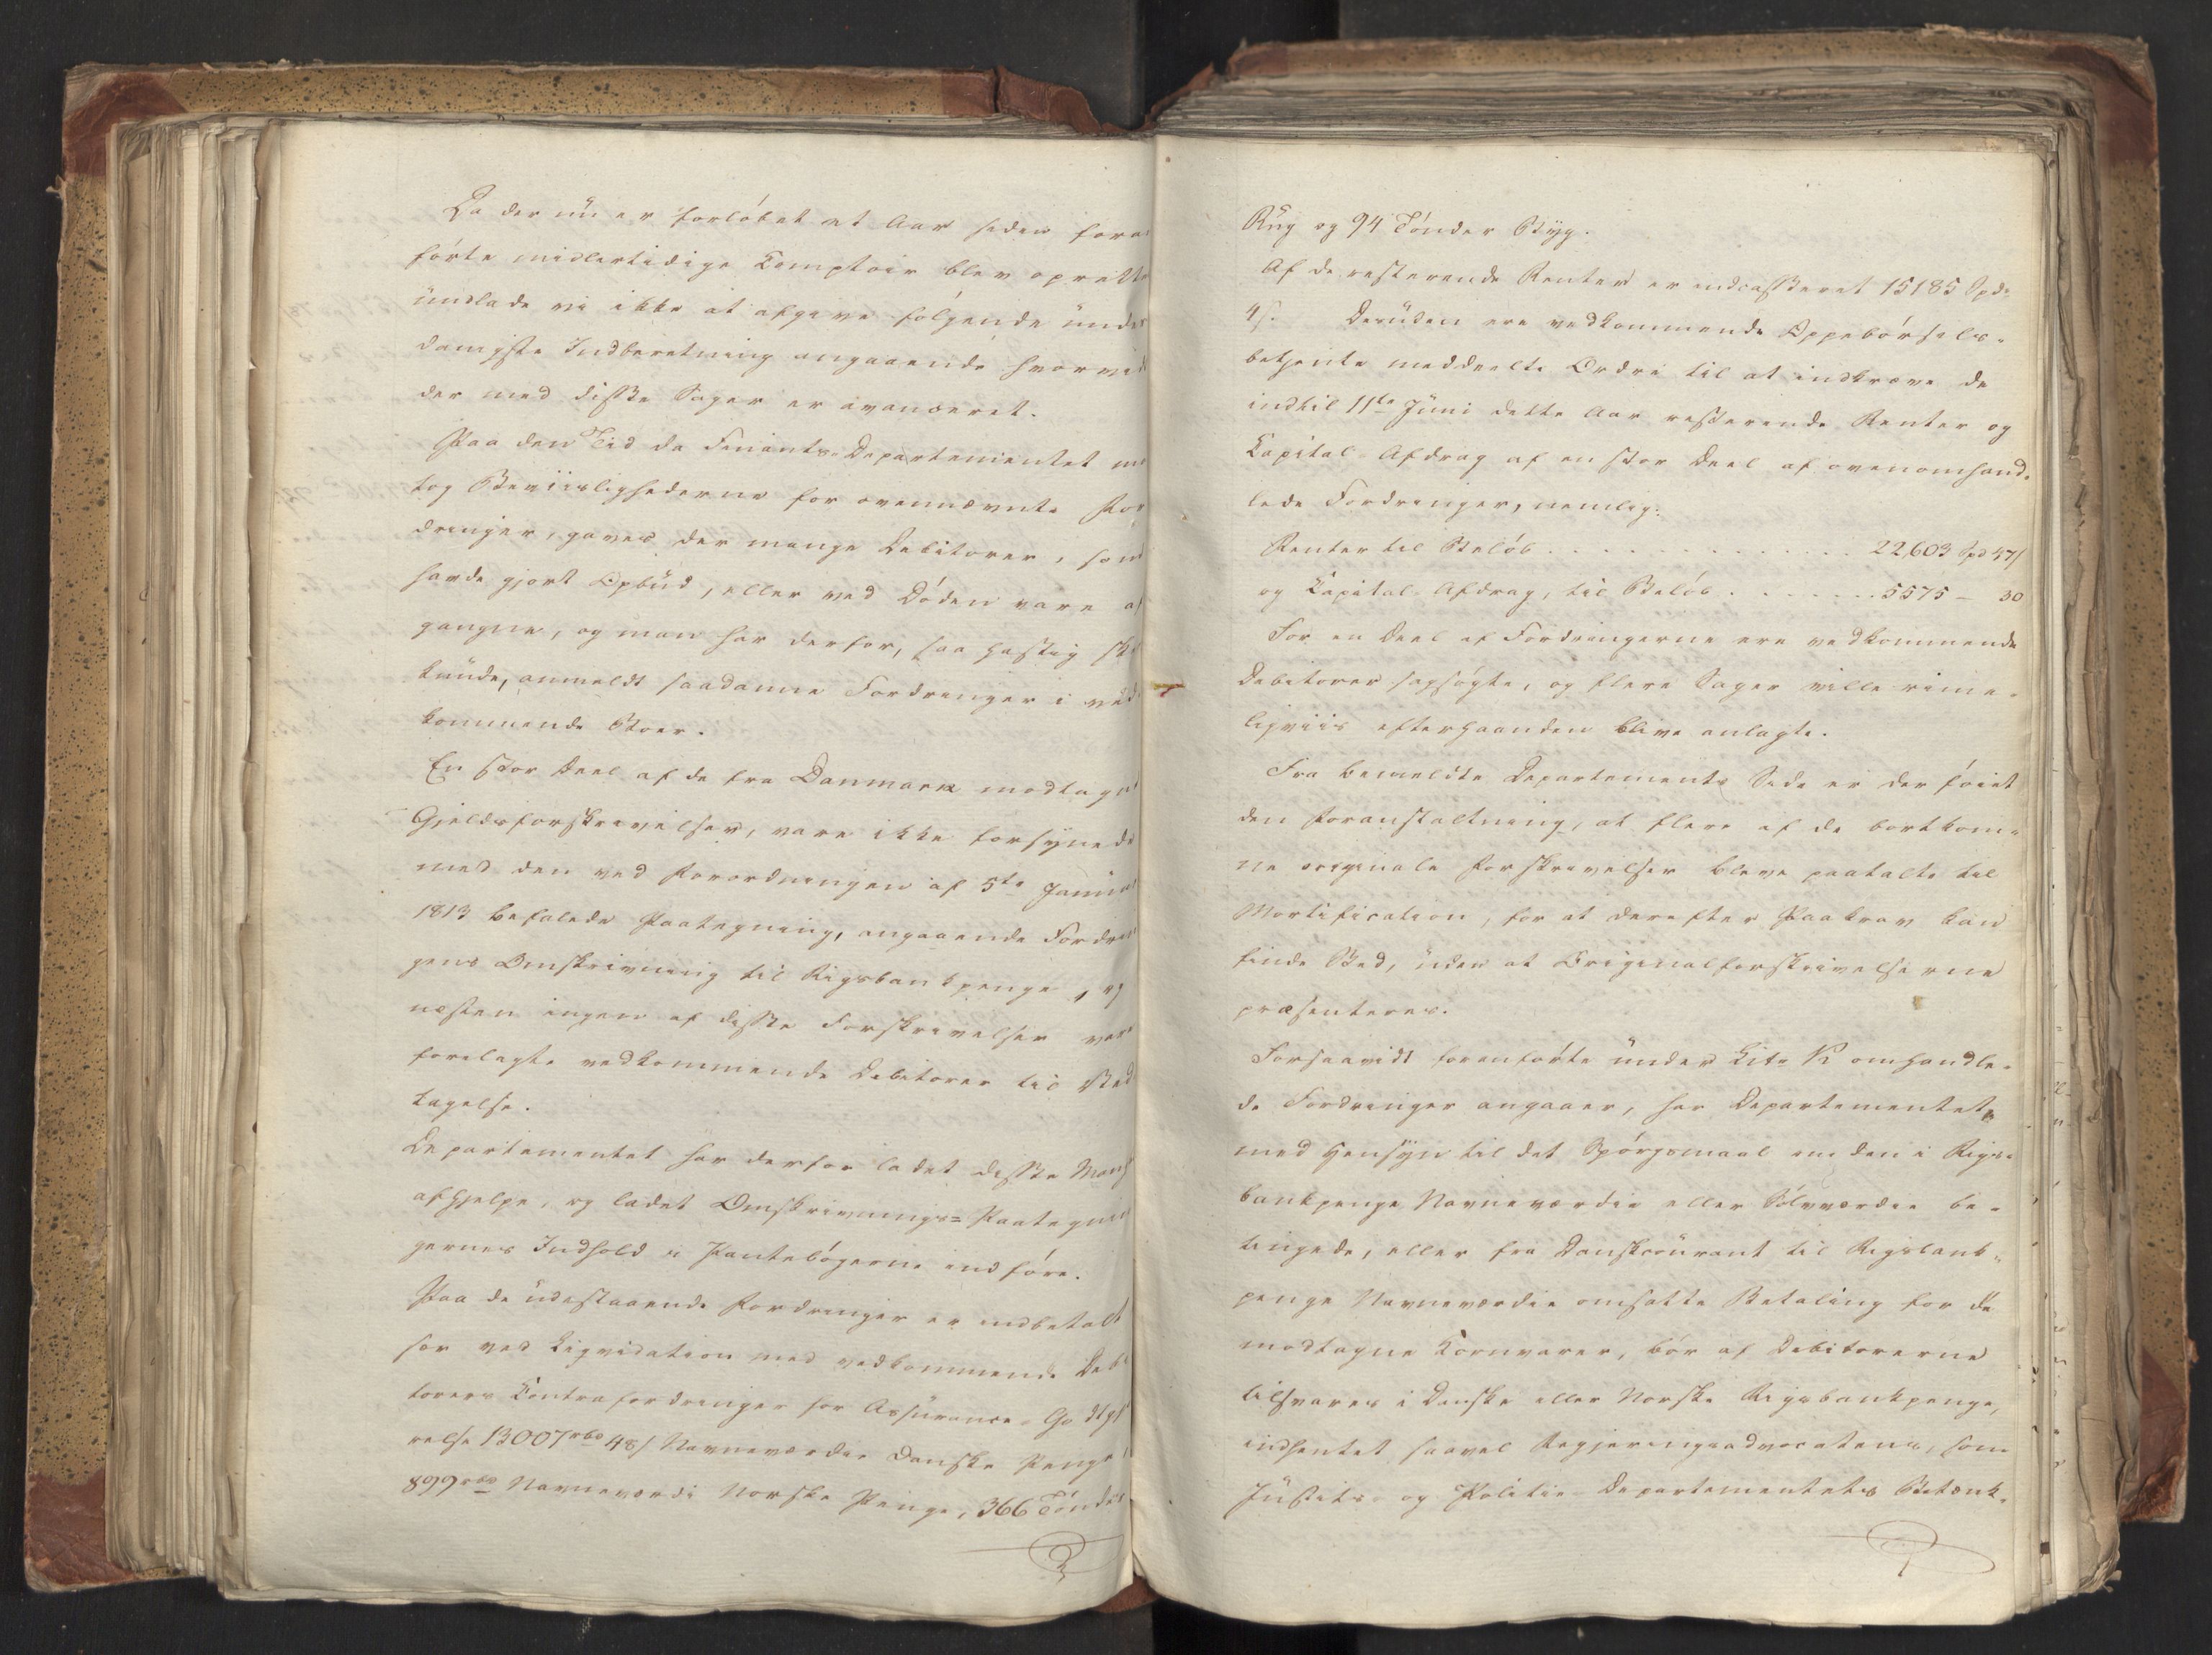 Da der nu er forløbet et Aar siden foran
førte midlertidige Comptoir blev oprette
undlade vi ikke at afgive følgende under
damigste Indberetning angaaende hvorvidt
der med disse Sager er avanceret.
Paa den Tid da Finants-Departementet mod
tog Beviislighederne for ovennævnte For
dringer, gaves der mange Debitorer, som
havde gjort Opbud, eller ved Døden vare af
gangne, og man har derfor, saa hastig skee
kunde, anmeldt saadanne Fordringer i ved
kommende Boer.
En stor Deel af de fra Danmark modtagne
Gjeldsforskrivelser, vare ikke forsynede
med den ved Forordningen af 5te Januar
1813 befalede Paategning, angaaende Fordrin
gens Omskrivning til Rigsbankpenge, og
næsten ingen af disse Forskrivelser vare
forelagte vedkommende Debitorer til Ved
tagelse.
Departementet har derfor ladet disse Mangl
afhjelpe, og ladet Omskrivnings-Paategnin
gernes Indhold i Pantebøgerne indføre.
Paa de udestaaende Fordringer er indbetalt
for ved Liqvidation med vedkommende Debi
torers Contrafordringer for Assurance-Godtgjø
relse 13007 rbd 48 s Navneværdie Danske Penge,
899 rbd Navneværdi Norske Penge, 366 Tønder
Rug og 94 Tønder Byg.
Af de resterende Renter er indcasseret 15185 Spd.
4 s. Desuden ere vedkommende Oppebørsels-
betjente meddeelte Ordre til at indkræve de
indtil 11te Juni dette Aar resterende Renter og
Capital-Afdrag af en stor Deel af ovenomhand-
lede Fordringer, nemlig:
Renter til Beløb . . . . . . . . . . . . 22,603 Spd 47 s
og Capital-Afdrag, til Beløb . . . . . . . 5575 — 30
For en Deel af Fordringerne ere vedkommende
Debitorer sagsøgte, og flere Sager ville rime-
ligviis efterhaanden blive anlagte.
Fra bemeldte Departements Side er der føiet
den Foranstaltning, at flere af de bortkom-
ne originale Forskrivelser bleve paatalte til
Mortification, for at derefter Paakrav kan
finde Sted, uden at Originalforskrivelserne
præsenteres.
Forsaavidt foranførte under Litr. B omhandle-
de Fordringer angaaer, har Departementet,
med Hensyn til det Spørgsmaal om den i Rigs-
bankpenge Navneværdie eller Sølvværdie be-
tingede, eller fra Danskcourant til Rigsbank-
penge Navneværdie omsatte Betaling for de
modtagne Kornvarer, bør af Debitorerne
tilsvares i Danske eller Norske Rigsbankpenge,
indhentet saavel Regjeringsadvocatens, som
Justits- og Politie-Departementets Betænk-